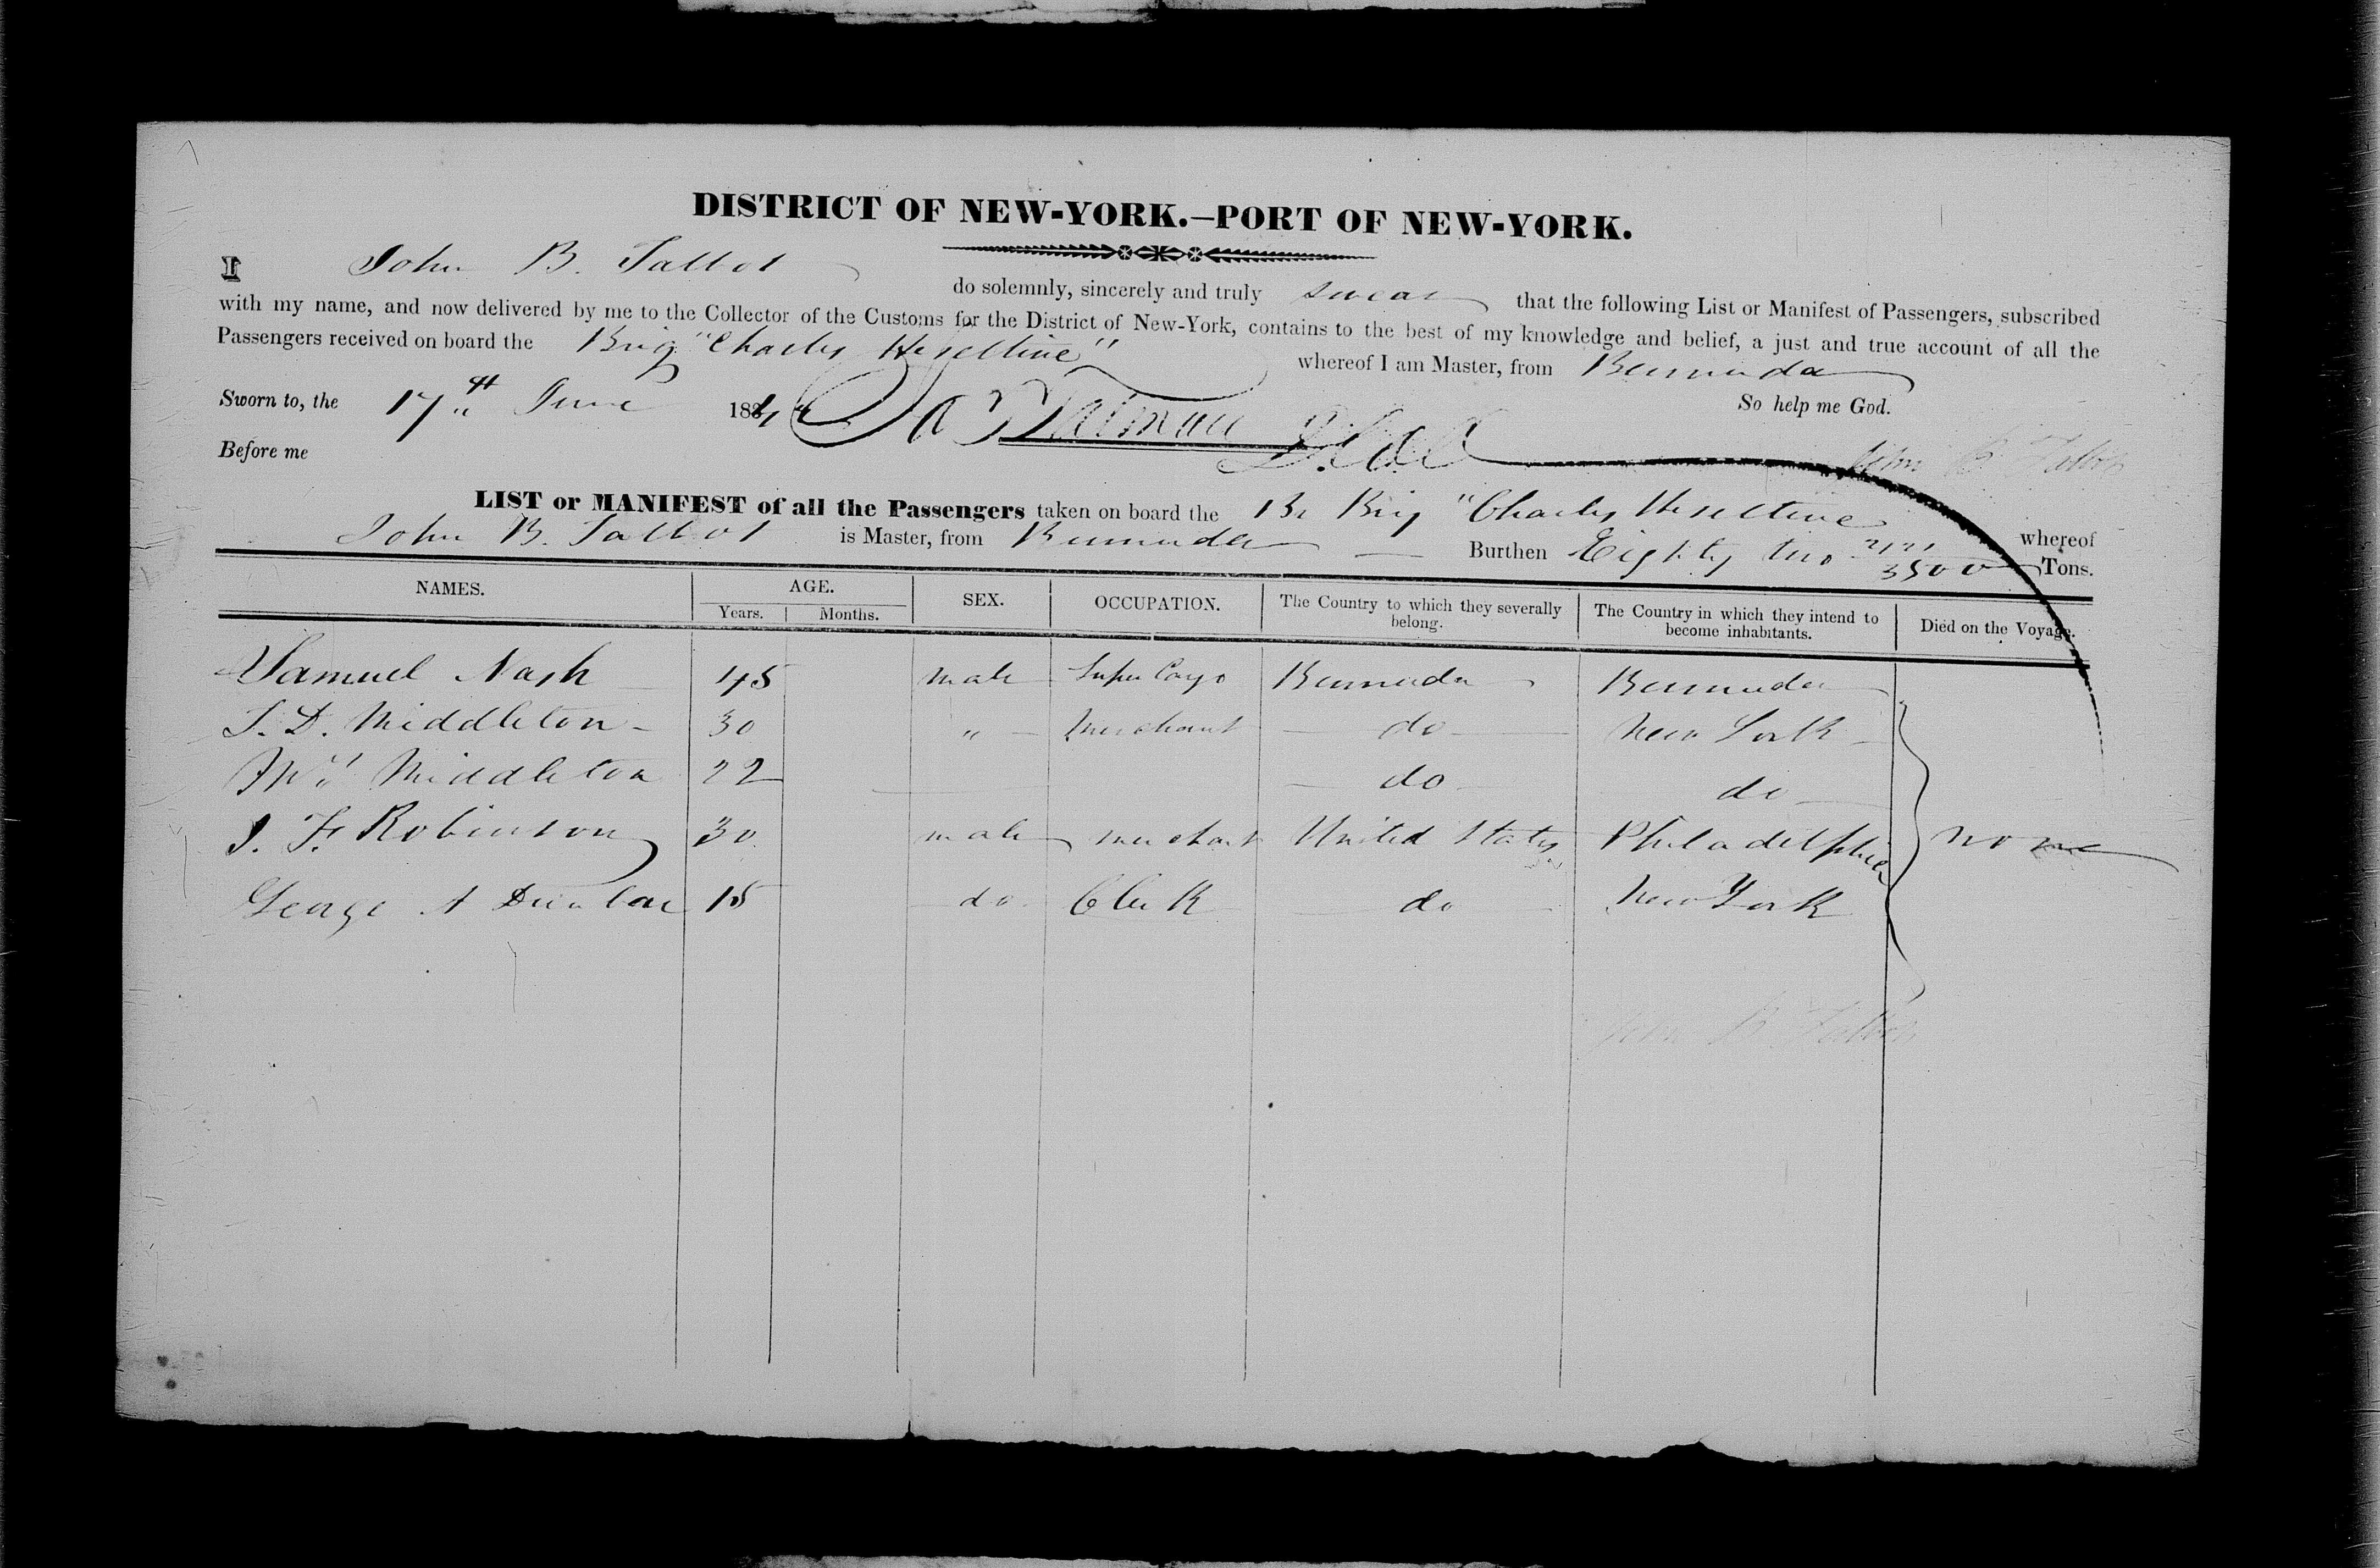 DISTRICT OF NEW-YORK.—PORT OF NEW-YORK.
I John B. Talbot do solemnly, sincerely and truly swear that the following List or Manifest of Passengers, subscribed
with my name, and now delivered by me to the Collector of the Customs for the District of New-York, contains to the best of my knowledge and belief, a just and true account of all the
Passengers received on board the Brig "Charles Heseltine" whereof I am Master, from Bermuda
Sworn to, the 17th June 184 So help me God.
Before me John B Talbot
LIST or MANIFEST of all the Passengers taken on board the Br Brig "Charles Heseltine whereof
John B. Talbot is Master, from Bermuda Burthen Eighty two 3500 Tons.
NAMES. AGE. SEX. OCCUPATION. The Country to which they severally belong. The Country in which they intend to become inhabitants. Died on the Voyage.
Years. Months.
Samuel Nash 45 male Super Cargo Bermuda Bermuda
T. D. Middleton 30 " merchant do New York
Mrs Middleton 22 do do
J. F. Robinson 30 male merchant United States Philadelphia none
George A Dunbar 15 do Clerk do New York
John B. Talbot